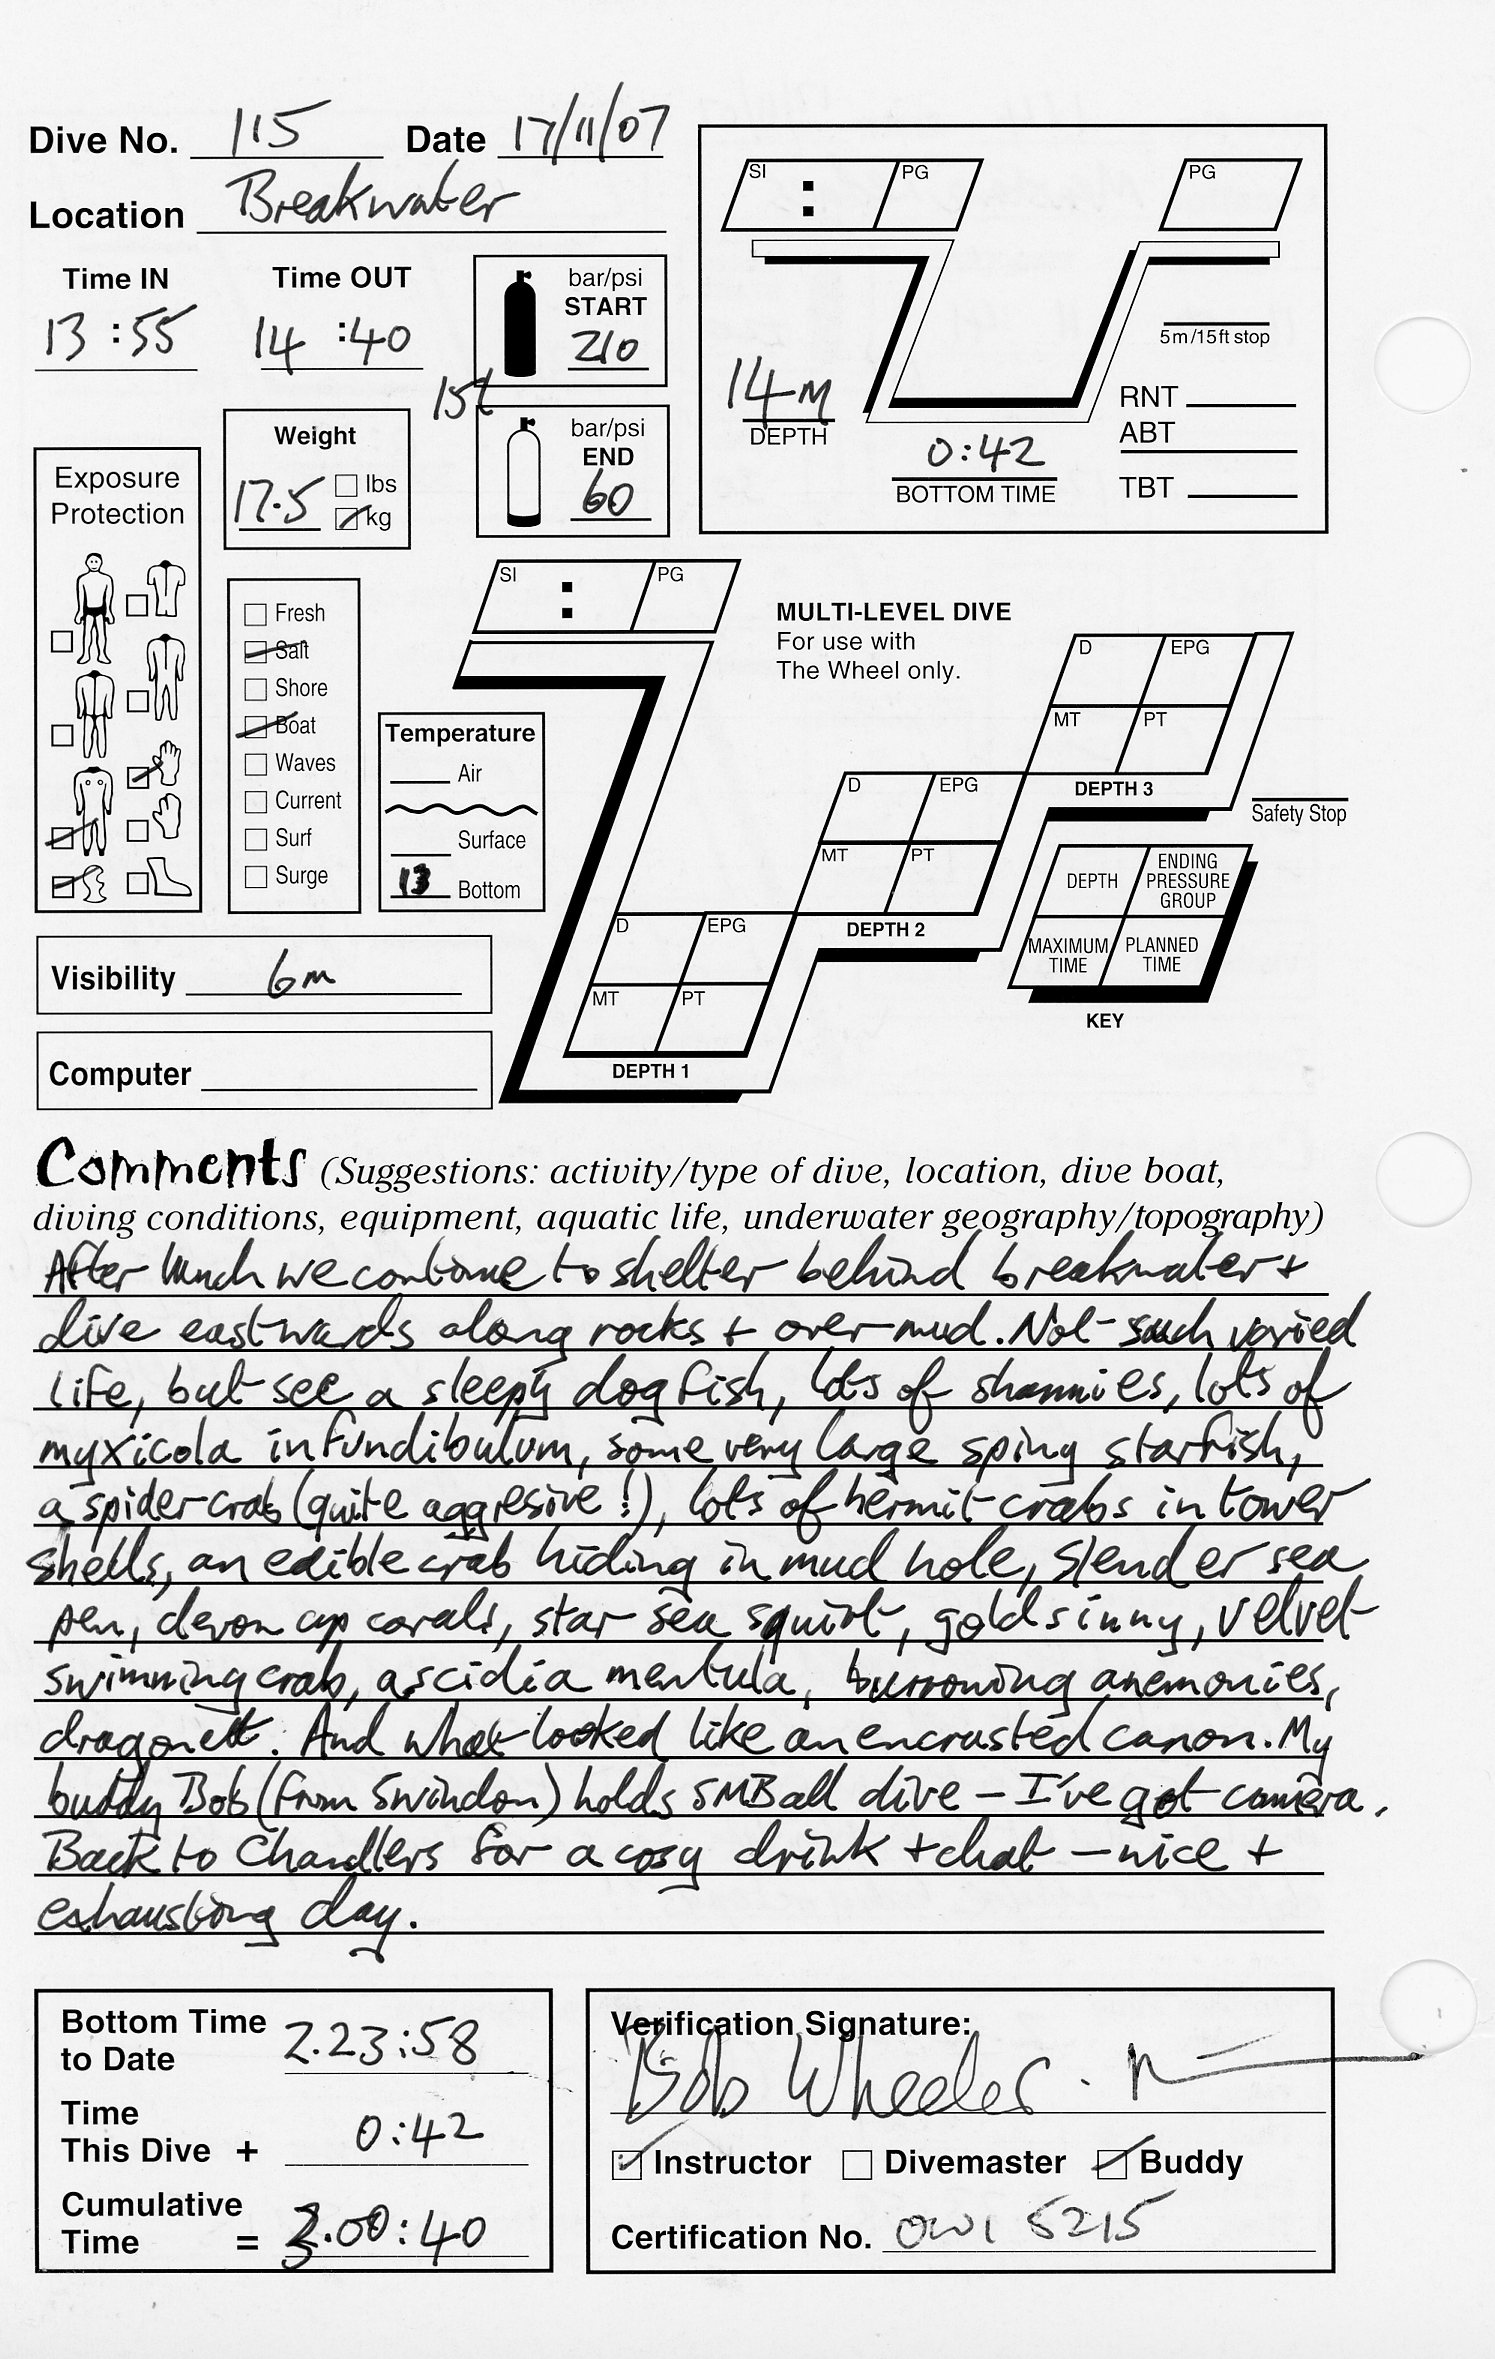 Dive No. 115 Date 17/11/07
Location Breakwater
Time IN Time OUT
13:55 14:40
bar/psi
START
210
15l
bar/psi
END
60
Weight
17.5 lbs
kg
Exposure
Protection
Fresh
Salt
Shore
Boat
Waves
Current
Surf
Surge
Temperature
Air
Surface
13 Bottom
Visibility 6m
Computer
SI : PG
PG
5m/15ft stop
14m
DEPTH
0:42
BOTTOM TIME
RNT
ABT
TBT
SI : PG
MULTI-LEVEL DIVE
For use with
The Wheel only.
D EPG
MT PT
DEPTH 3
D EPG
MT PT
DEPTH 2
D EPG
MT PT
DEPTH 1
Safety Stop
DEPTH ENDING PRESSURE GROUP
MAXIMUM TIME PLANNED TIME
KEY
Comments (Suggestions: activity/type of dive, location, dive boat,
diving conditions, equipment, aquatic life, underwater geography/topography)
After lunch we continue to shelter behind breakwater +
dive eastwards along rocks + over mud. Not such varied
life, but see a sleepy dogfish, lots of shannies, lots of
myxicola infundibulum, some very large spiny starfish,
a spider crab (quite aggresive!), lots of hermit crabs in tower
shells, an edible crab hiding in mud hole, slender sea
pen, devon cup corals, star sea squirt, goldsinny, velvet
swimming crab, ascidia mentula, burrowing anemonies,
dragonett. And what looked like an encrusted canon. My
buddy Bob (from Swindon) holds SMB all dive - I've got camera.
Back to Chandlers for a cosy drink + chat - nice +
exhausting day.
Bottom Time
to Date 2.23:58
Time
This Dive + 0:42
Cumulative
Time = 3.00:40
Verification Signature:
Bob Wheeler.
Instructor Divemaster Buddy
Certification No. OWI 5215